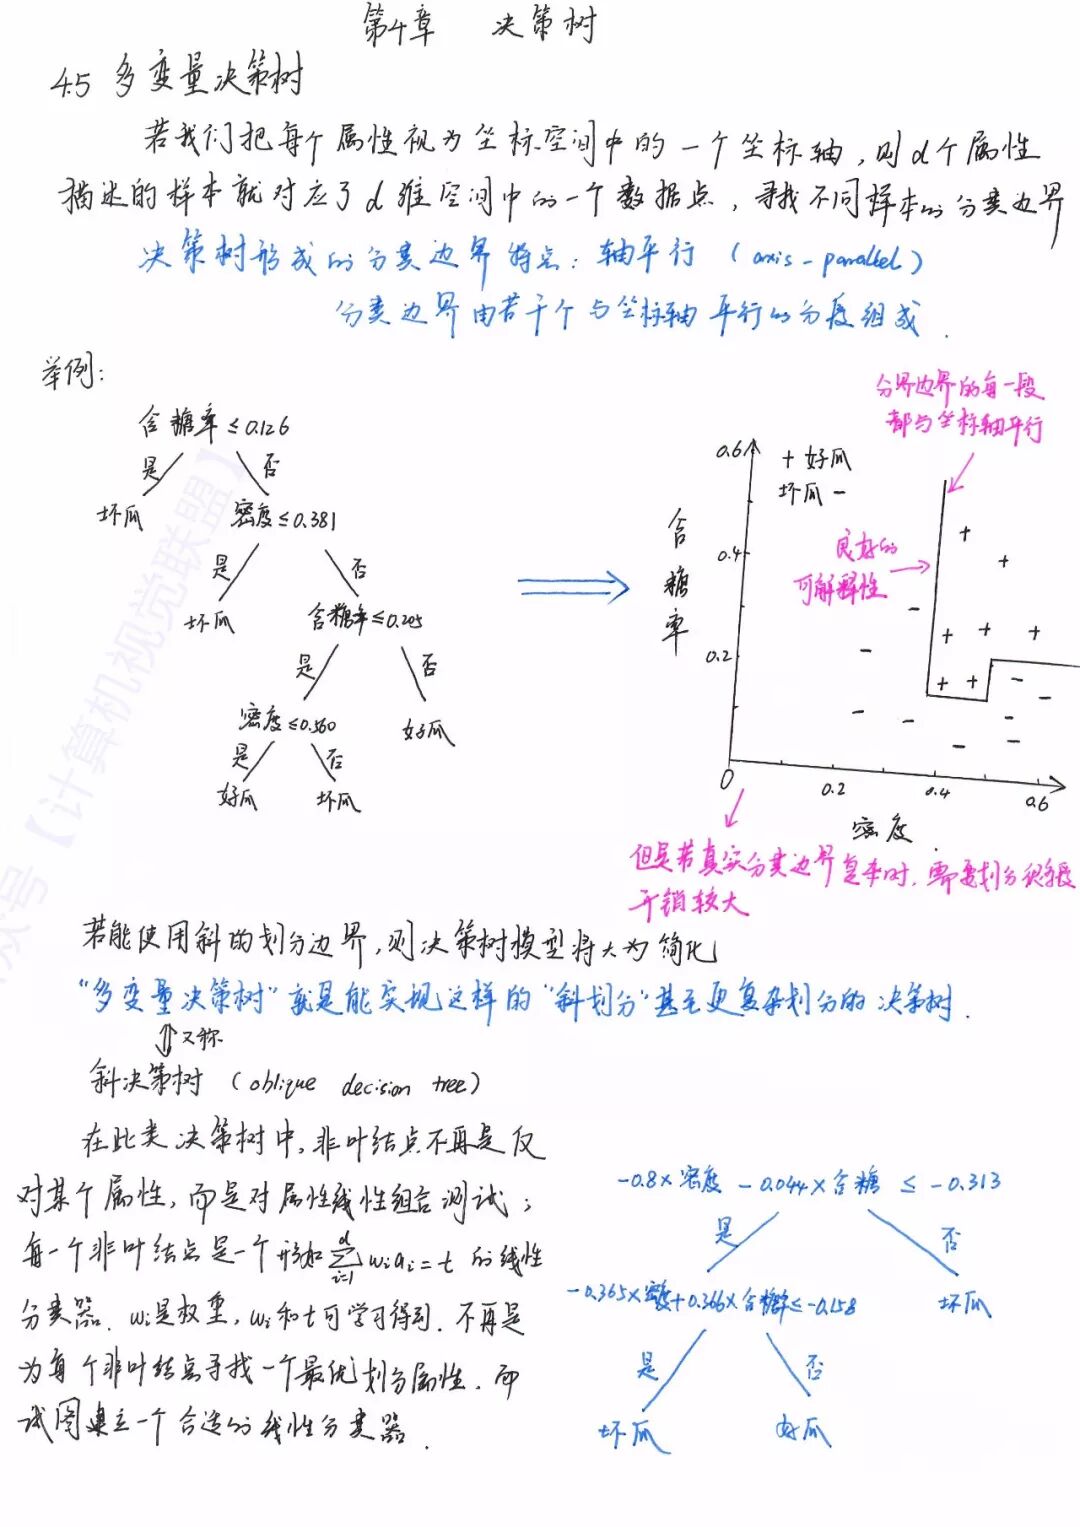 第4章 决策树
4.5 多变量决策树
若我们把每个属性视为坐标空间中的一个坐标轴,则d个属性
描述的样本就对应了d维空间中的一个数据点,寻找不同样本的分类边界
决策树形成的分类边界特点:轴平行 (axis-parallel)
分类边界由若干个与坐标轴平行的分段组成.
举例:
含糖率≤0.126
是 否
坏瓜 密度≤0.381
是 否
坏瓜 含糖率≤0.205
是 否
密度≤0.560 好瓜
是 否
好瓜 坏瓜
分界边界的每一段
都与坐标轴平行
0.6 + 好瓜
坏瓜 -
含糖率
0.4
良好的
可解释性
0.2
0 0.2 0.4 0.6
密度
但是若真实分类边界复杂时,需要划分很多段
开销较大
若能使用斜的划分边界,则决策树模型将大为简化
"多变量决策树"就是能实现这样的"斜划分"甚至更复杂划分的决策树.
⇕又称
斜决策树 (oblique decision tree)
在此类决策树中,非叶结点不再是仅
对某个属性,而是对属性线性组合测试;
每一个非叶结点是一个形如∑_{i=1}^{d} wᵢaᵢ=t的线性
分类器.wᵢ是权重,wᵢ和t可学习得到.不再是
为每个非叶结点寻找一个最优划分属性.而
试图建立一个合适的线性分类器.
-0.8×密度 -0.044×含糖 ≤ -0.313
是 否
-0.365×密度+0.366×含糖率≤-0.158 坏瓜
是 否
坏瓜 好瓜
号【计算机视觉联盟】